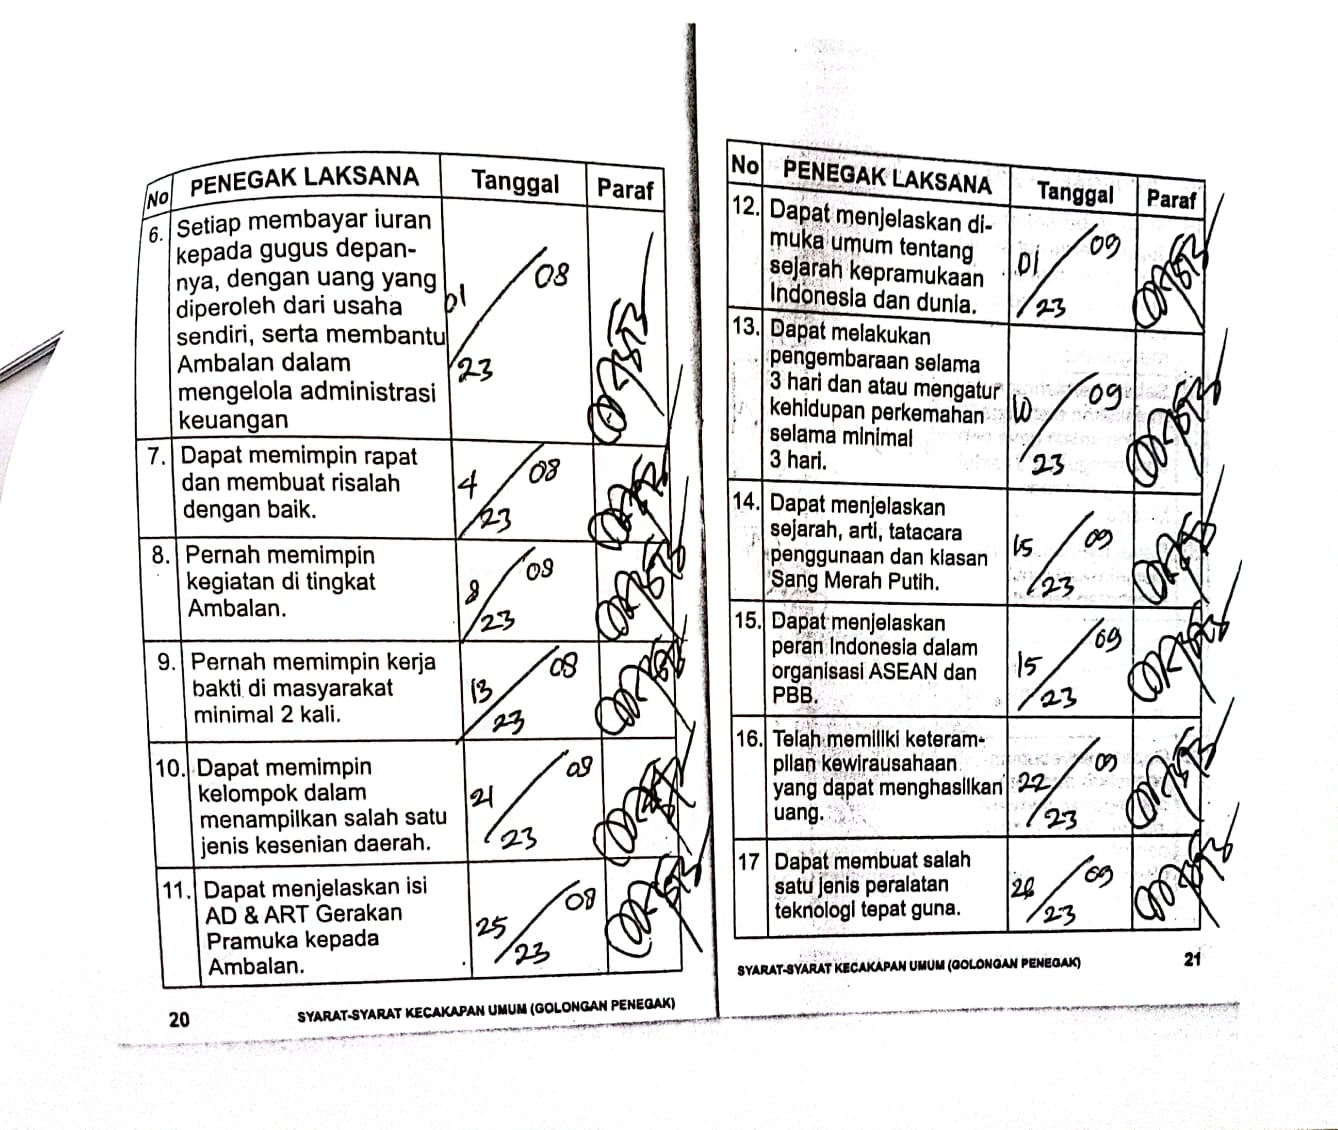 No PENEGAK LAKSANA Tanggal Paraf
6. Setiap membayar iuran
kepada gugus depan-
nya, dengan uang yang
diperoleh dari usaha
sendiri, serta membantu
Ambalan dalam
mengelola administrasi
keuangan
01/08/23
7. Dapat memimpin rapat
dan membuat risalah
dengan baik.
4/08/23
8. Pernah memimpin
kegiatan di tingkat
Ambalan.
8/08/23
9. Pernah memimpin kerja
bakti di masyarakat
minimal 2 kali.
13/08/23
10. Dapat memimpin
kelompok dalam
menampilkan salah satu
jenis kesenian daerah.
21/08/23
11. Dapat menjelaskan isi
AD & ART Gerakan
Pramuka kepada
Ambalan.
25/08/23
20 SYARAT-SYARAT KECAKAPAN UMUM (GOLONGAN PENEGAK)
No PENEGAK LAKSANA Tanggal Paraf
12. Dapat menjelaskan di-
muka umum tentang
sejarah kepramukaan
Indonesia dan dunia.
01/09/23
13. Dapat melakukan
pengembaraan selama
3 hari dan atau mengatur
kehidupan perkemahan
selama minimal
3 hari.
10/09/23
14. Dapat menjelaskan
sejarah, arti, tatacara
penggunaan dan kiasan
Sang Merah Putih.
15/09/23
15. Dapat menjelaskan
peran Indonesia dalam
organisasi ASEAN dan
PBB.
15/09/23
16. Telah memiliki keteram-
pilan kewirausahaan
yang dapat menghasilkan
uang.
22/09/23
17 Dapat membuat salah
satu jenis peralatan
teknologi tepat guna.
/09/23
SYARAT-SYARAT KECAKAPAN UMUM (GOLONGAN PENEGAK) 21